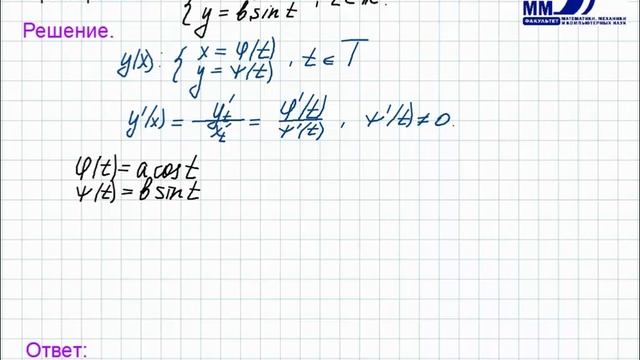 { y = b sin t
Решение.
ММ
ФАКУЛЬТЕТ МАТЕМАТИКИ, МЕХАНИКИ И КОМПЬЮТЕРНЫХ НАУК
y(x): { x = φ(t) y = ψ(t) , t ∈ T
y'(x) = y't / x't = φ'(t) / ψ'(t) , ψ'(t) ≠ 0.
φ(t) = a cos t
ψ(t) = b sin t
Ответ: